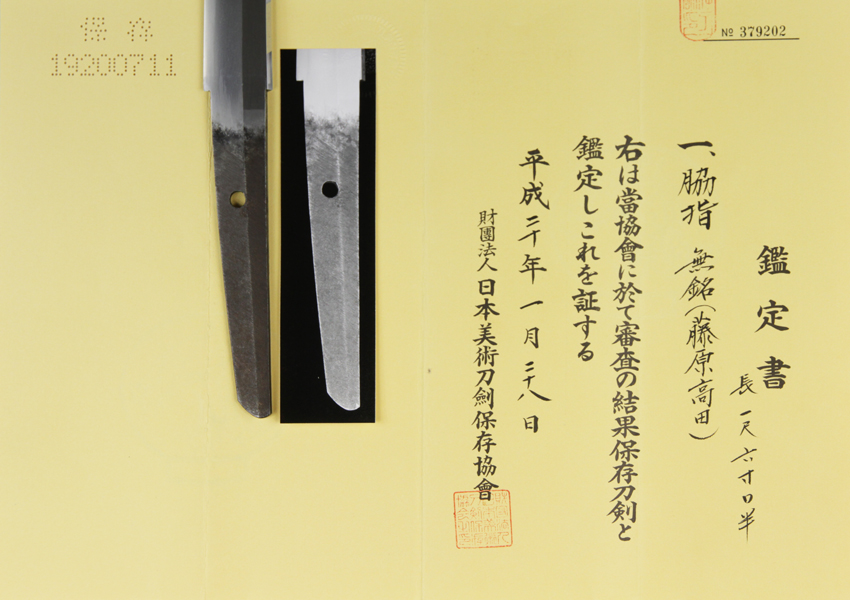 № 379202
鑑定書
長 一尺六寸口半
一、脇指 無銘(藤原高田)
右は當協會に於て審査の結果保存刀剣と
鑑定しこれを証する
平成二十年一月二十八日
財團法人日本美術刀劍保存協會
保存
19200711